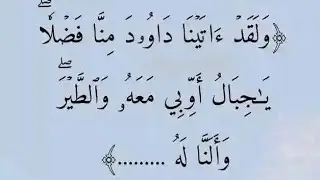 ﴿وَلَقَدۡ ءَاتَيۡنَا دَاوُۥدَ مِنَّا فَضۡلٗاۖ
يَٰجِبَالُ أَوِّبِي مَعَهُۥ وَٱلطَّيۡرَۖ
وَأَلَنَّا لَهُ ..........﴾